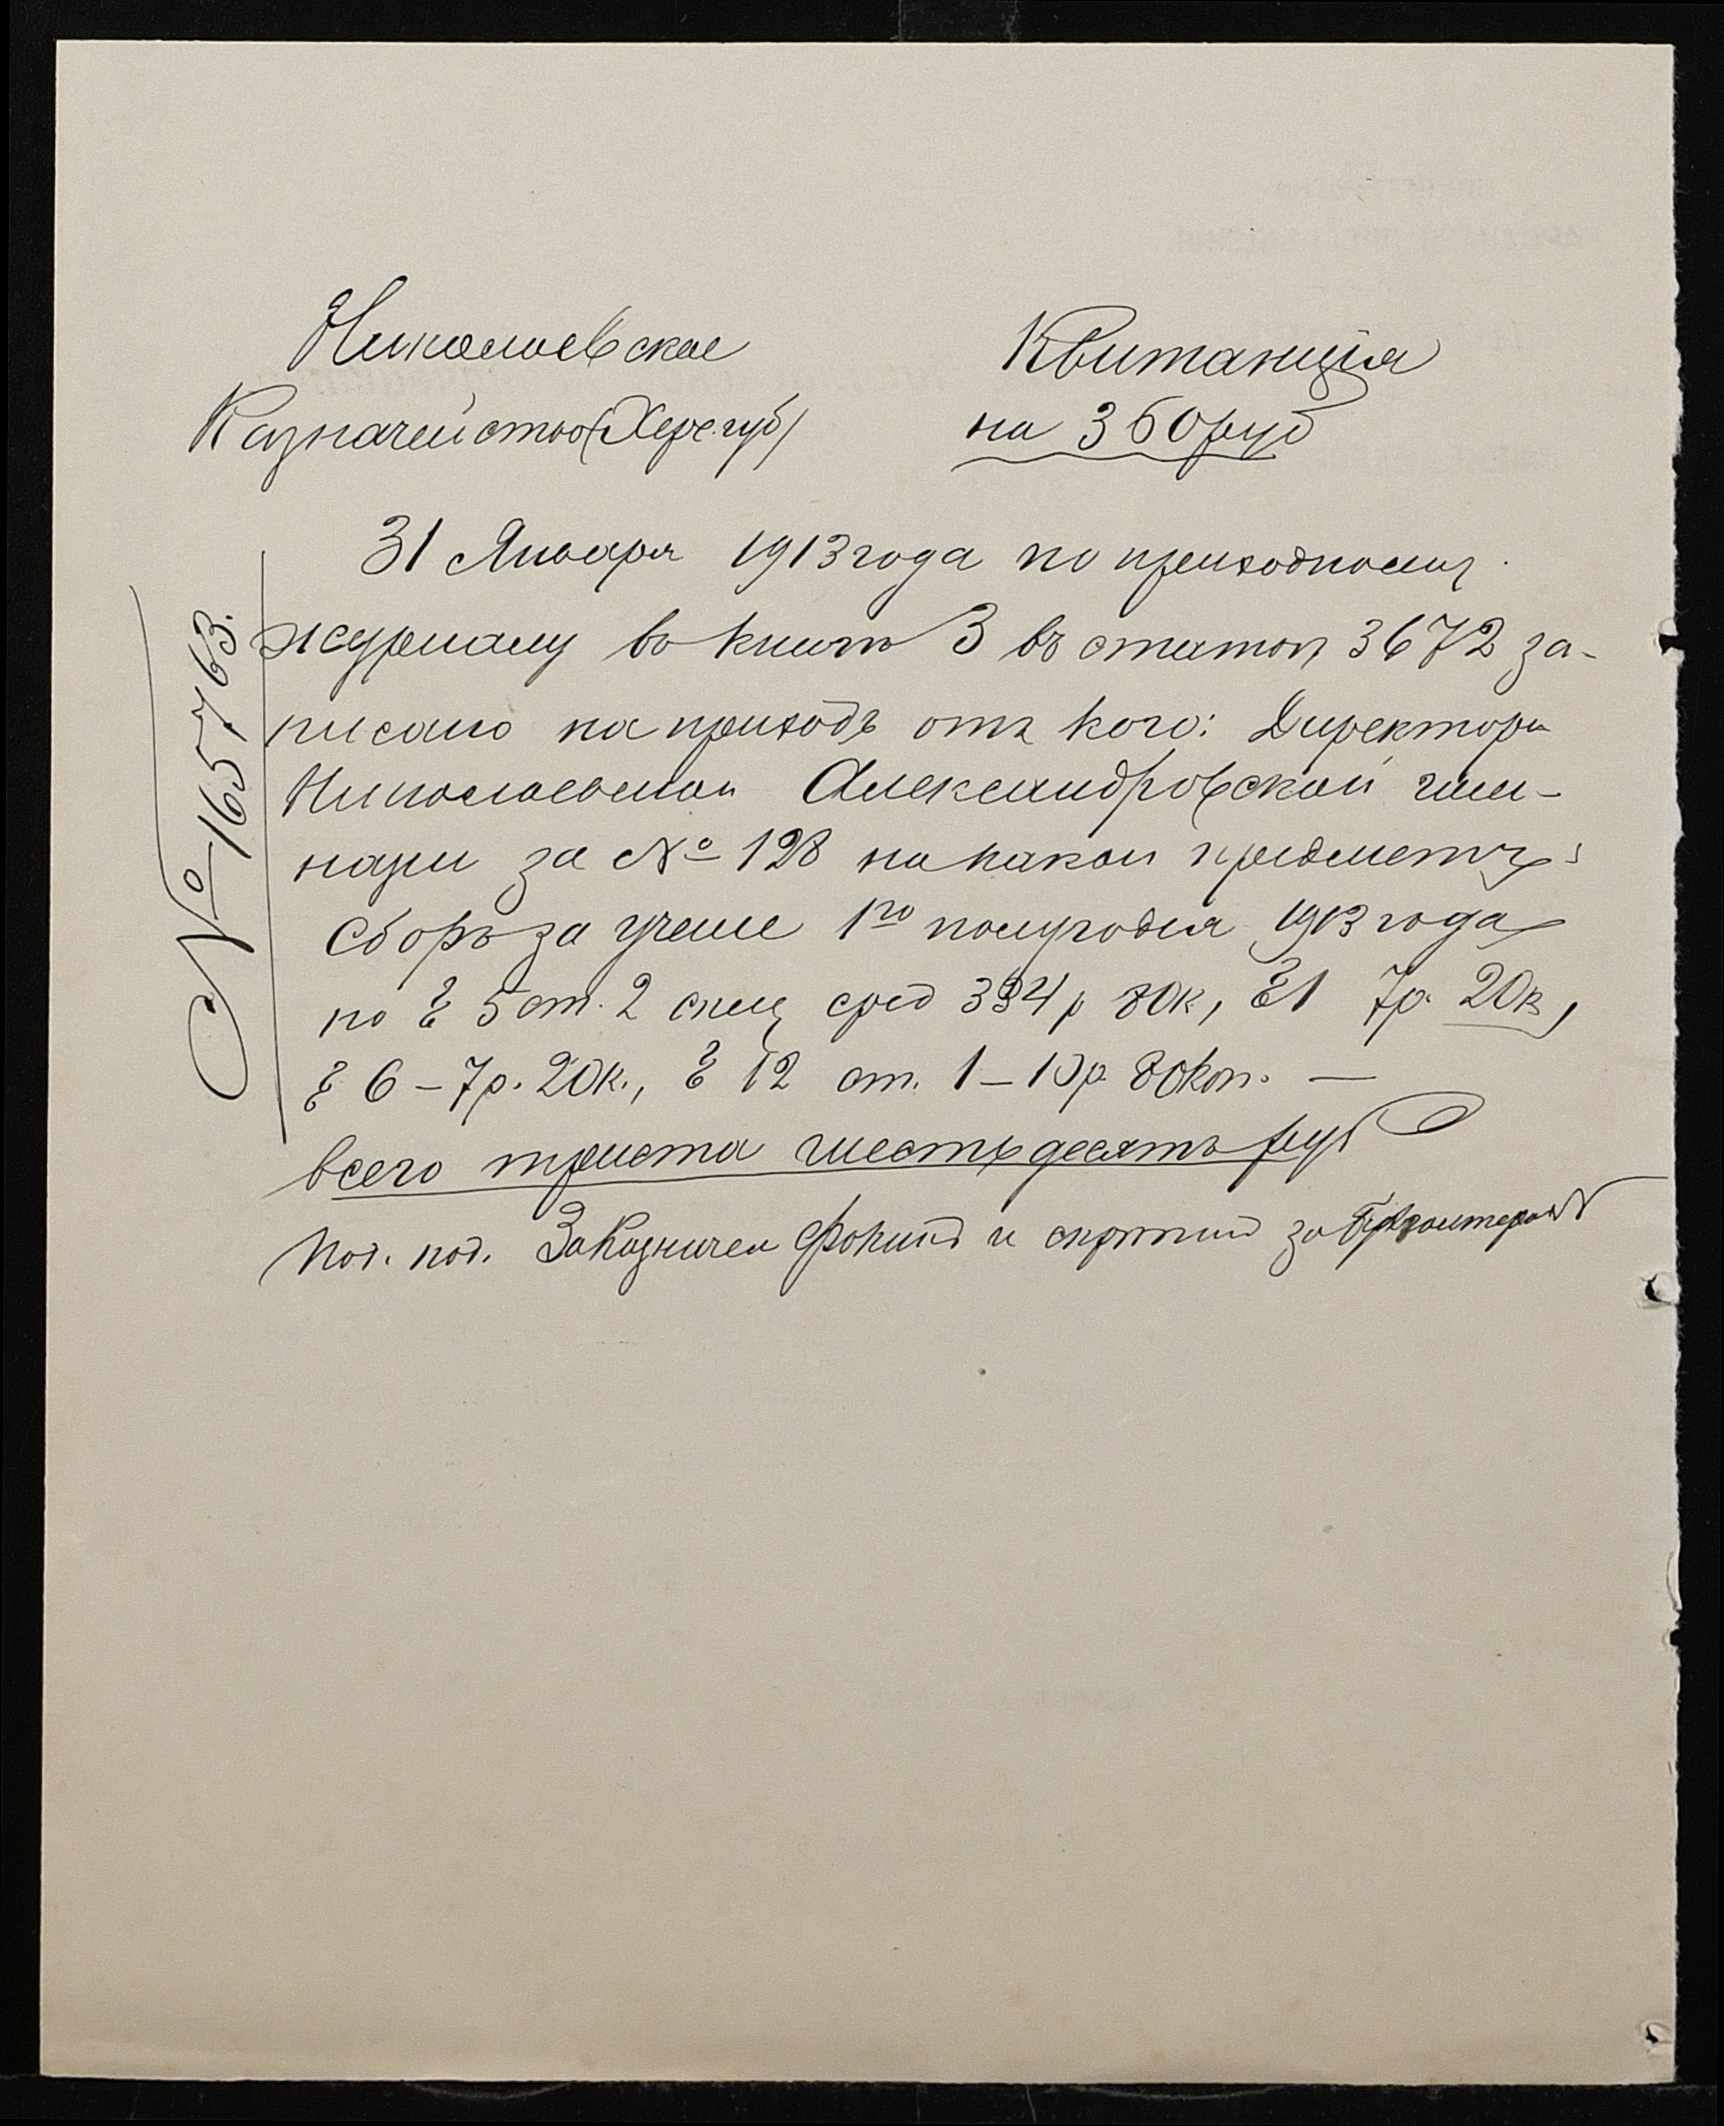 Николаевское
Казначейство (Херс. губ)
Квитанція
на 360 руб
№ 165763.
31 Января 1913 года по приходному
журналу въ книгѣ 3 въ статьѣ 3672 за-
писано на приходъ отъ кого: Директора
Николаевской Александровской гим-
назіи за № 128 на какой предметъ:
Сборъ за ученіе 1го полугодія 1913 года
по § 5 ст. 2 спец сред 334 р 80к, § 1 7р. 20к,
§ 6 – 7р. 20к., § 12 ст. 1 – 10р 80коп. —
всего триста шестьдесятъ руб
Под. под. За Казначея Фокинъ и скрѣпилъ за Бухгалтера